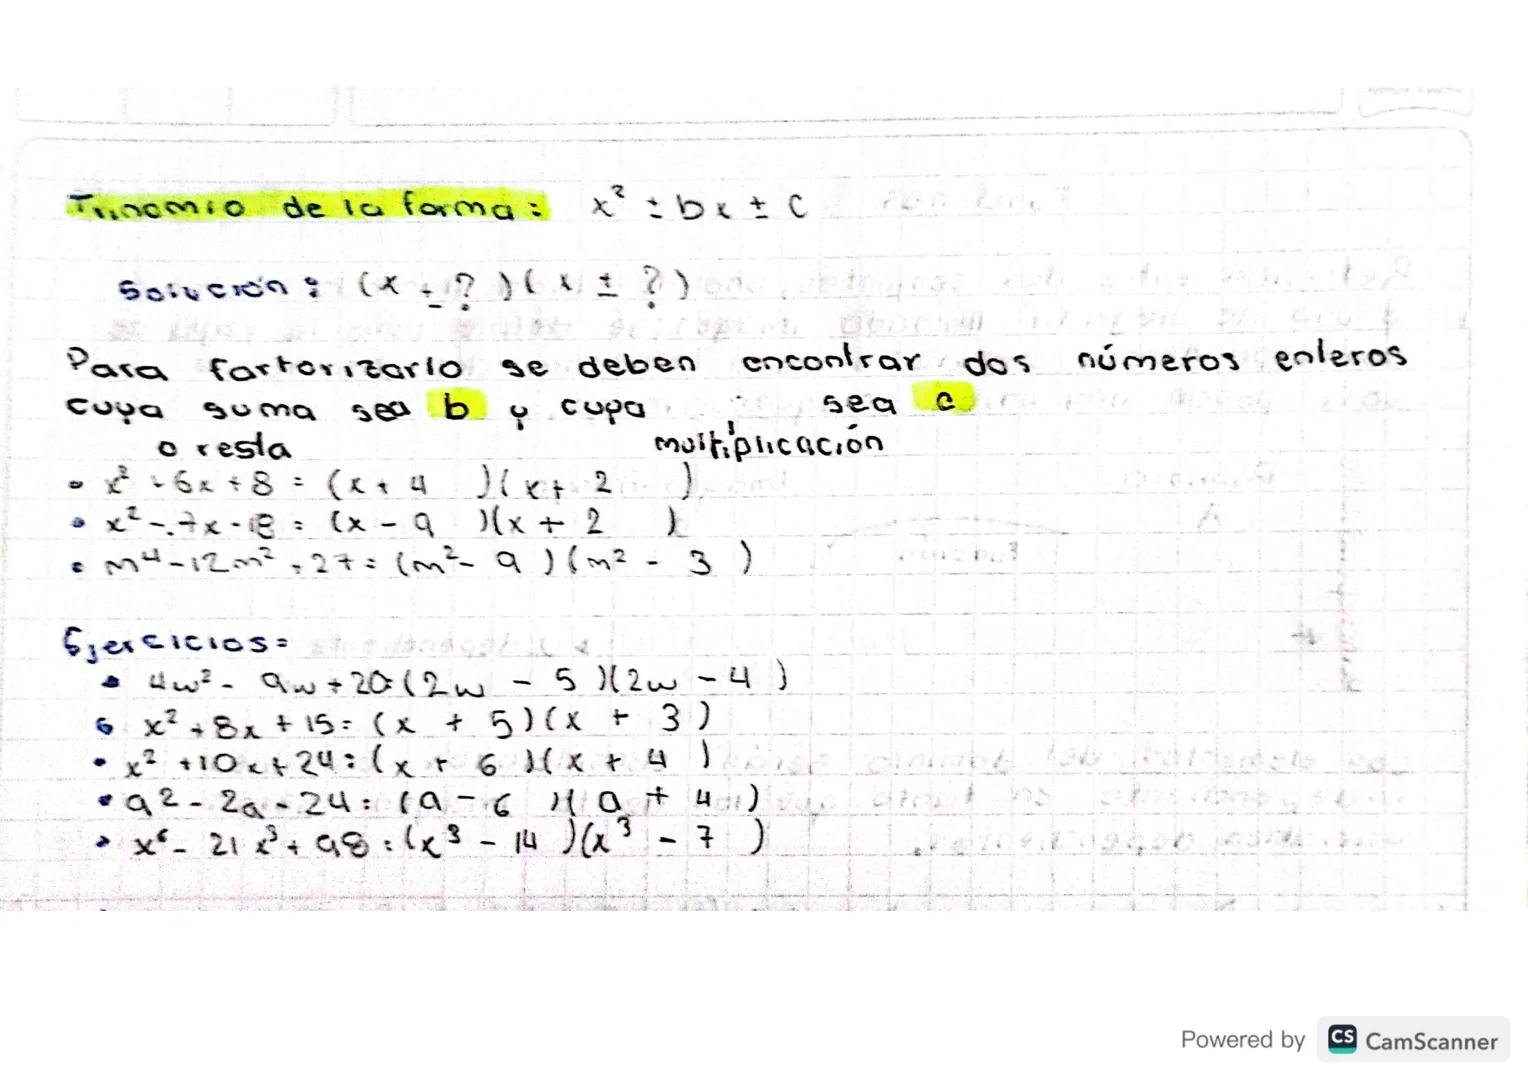 Trinomio de la forma: x² ± bx ± c
Solución: (x ± ?)(x ± ?)
Para factorizarlo se deben encontrar dos números enteros
cuya suma sea b y cuya sea c
o resta multiplicación
• x² + 6x + 8 = (x + 4 )(x + 2 )
• x² - 7x - 18 = (x - 9 )(x + 2 )
• m⁴ - 12m² + 27 = (m² - 9 )(m² - 3 )
Ejercicios=
• 4w² - 9w + 20 = (2w - 5 )(2w - 4 )
• x² + 8x + 15 = (x + 5)(x + 3)
• x² + 10x + 24 = (x + 6 )(x + 4 )
• a² - 2a - 24 = (a - 6 )(a + 4 )
• x⁶ - 21x³ + 98 = (x³ - 14 )(x³ - 7 )
Powered by CS CamScanner